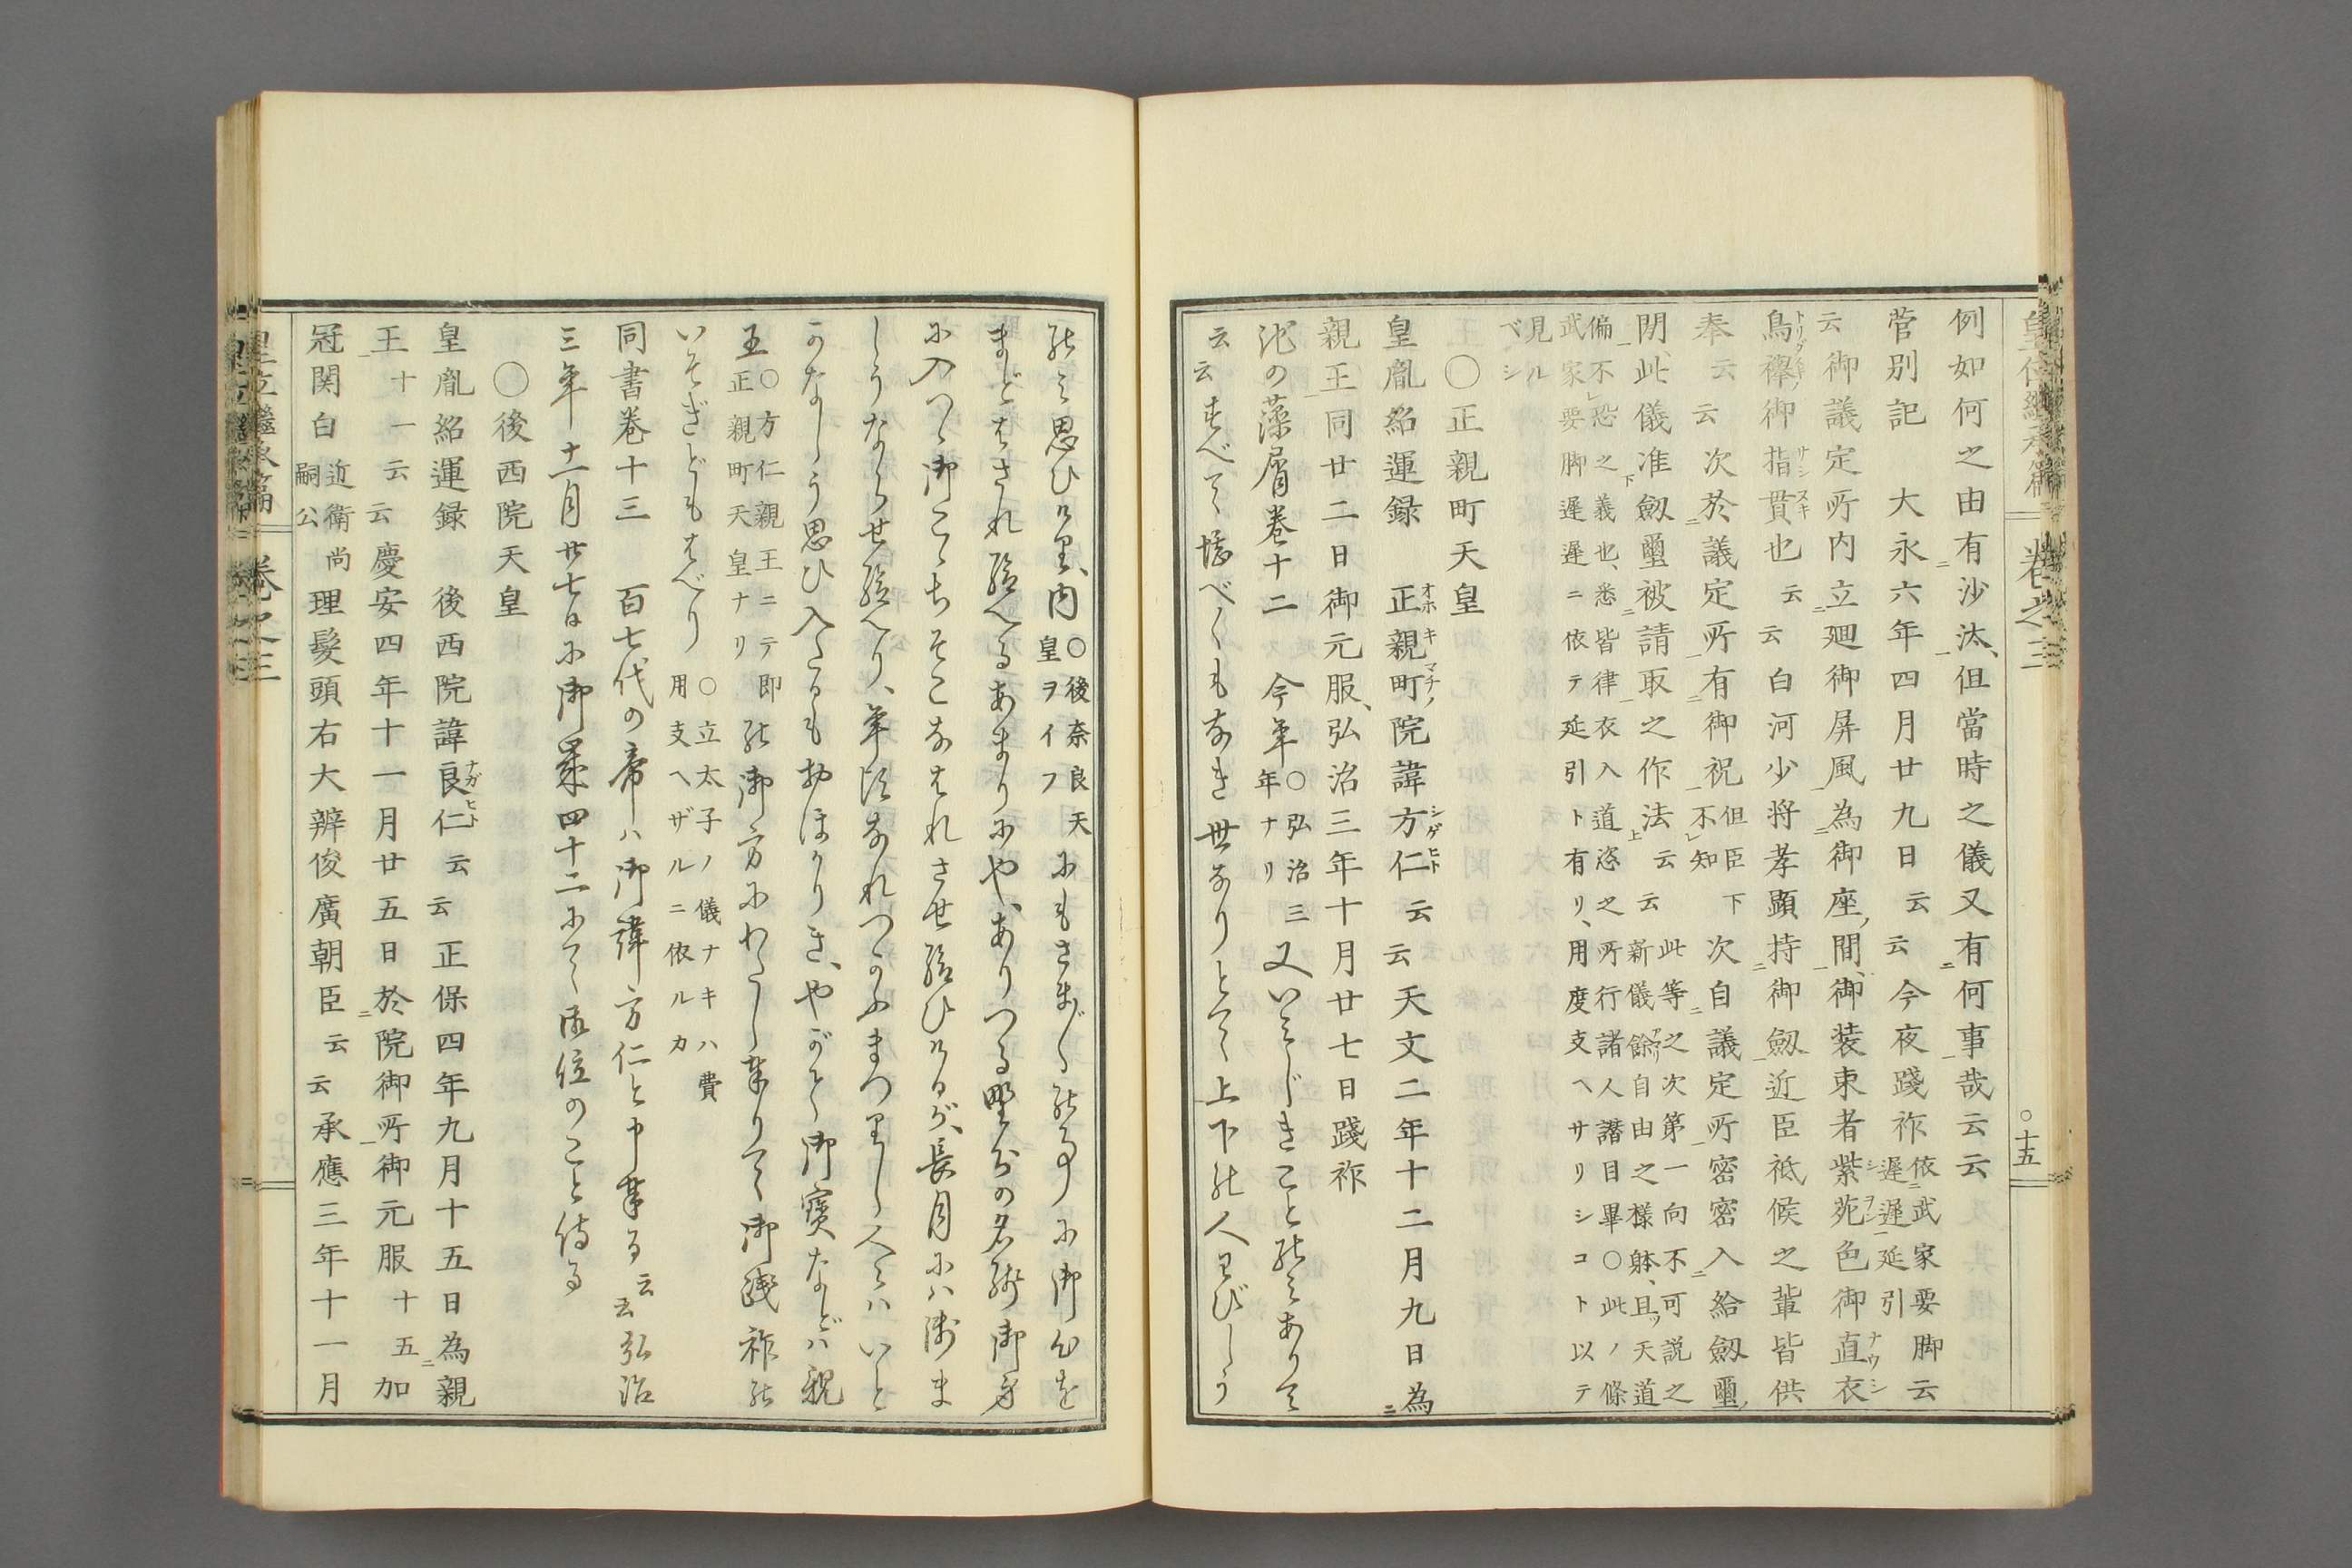 皇位繼承篇 卷之三 ○十五
例如何之由有沙汰、但當時之儀又有何事哉云云
菅別記 大永六年四月廿九日云云今夜踐祚依武家要脚云遲遲延引
云御議定所内立廻御屏風為御座、間、御装束者紫苑色御直衣
鳥襷御指貫也云云白河少将孝顕持御劔近臣祇候之輩皆供
奉云云次於議定所有御祝但臣下不知次自議定所密密入給劔璽、
閉、此儀准劔璽被請取之作法云云此等之次第一向不可説之新儀餘自由之様躰、且ツ天道
偏不恐之義也、悉皆律衣入道恣之所行諸人譜目畢○此ノ條
武家要脚遲遲ニ依テ延引ト有リ、用度支ヘサリシコト以テ
見ルベシ
○正親町天皇
皇胤紹運録 正親町院諱方仁云云天文二年十二月九日為
親王同廿二日御元服、弘治三年十月廿七日踐祚
池の藻屑卷十二 今年○弘治三年ナリ又いミじきこと能ミありて
云云すべて
世なりとて上下能人わびしう
能ミ思ひける、内○後奈良天皇ヲイフにもさまざま能事に御心を
まどはされ給へるあまりにや、ありつる野分の名残御身
に入つゝ御こゝちそこなはれさせ給ひけるが、長月にハ
しうならせ給へり、年頃なれつかふまつりし人々ハいと
かなしう思ひ入たるもおほかりき、やがて御寶などハ親
王○方仁親王ニテ即正親町天皇ナリ能御方にわたし奉りて御踐祚能
いそぎどもはべり○立太子ノ儀ナキハ費用支ヘザルニ依ルカ
同書卷十三 百七代の帝ハ御諱方仁と申奉る云云弘治
三年十一月廿七日に御年四十二にて御位のこと侍る
○後西院天皇
皇胤紹運録 後西院諱良仁云云正保四年九月十五日為親
王十一云云慶安四年十一月廿五日於院御所御元服十五加
冠関白近衛尚嗣公理髪頭右大辨俊廣朝臣云云承應三年十一月
皇位繼承篇 卷之三